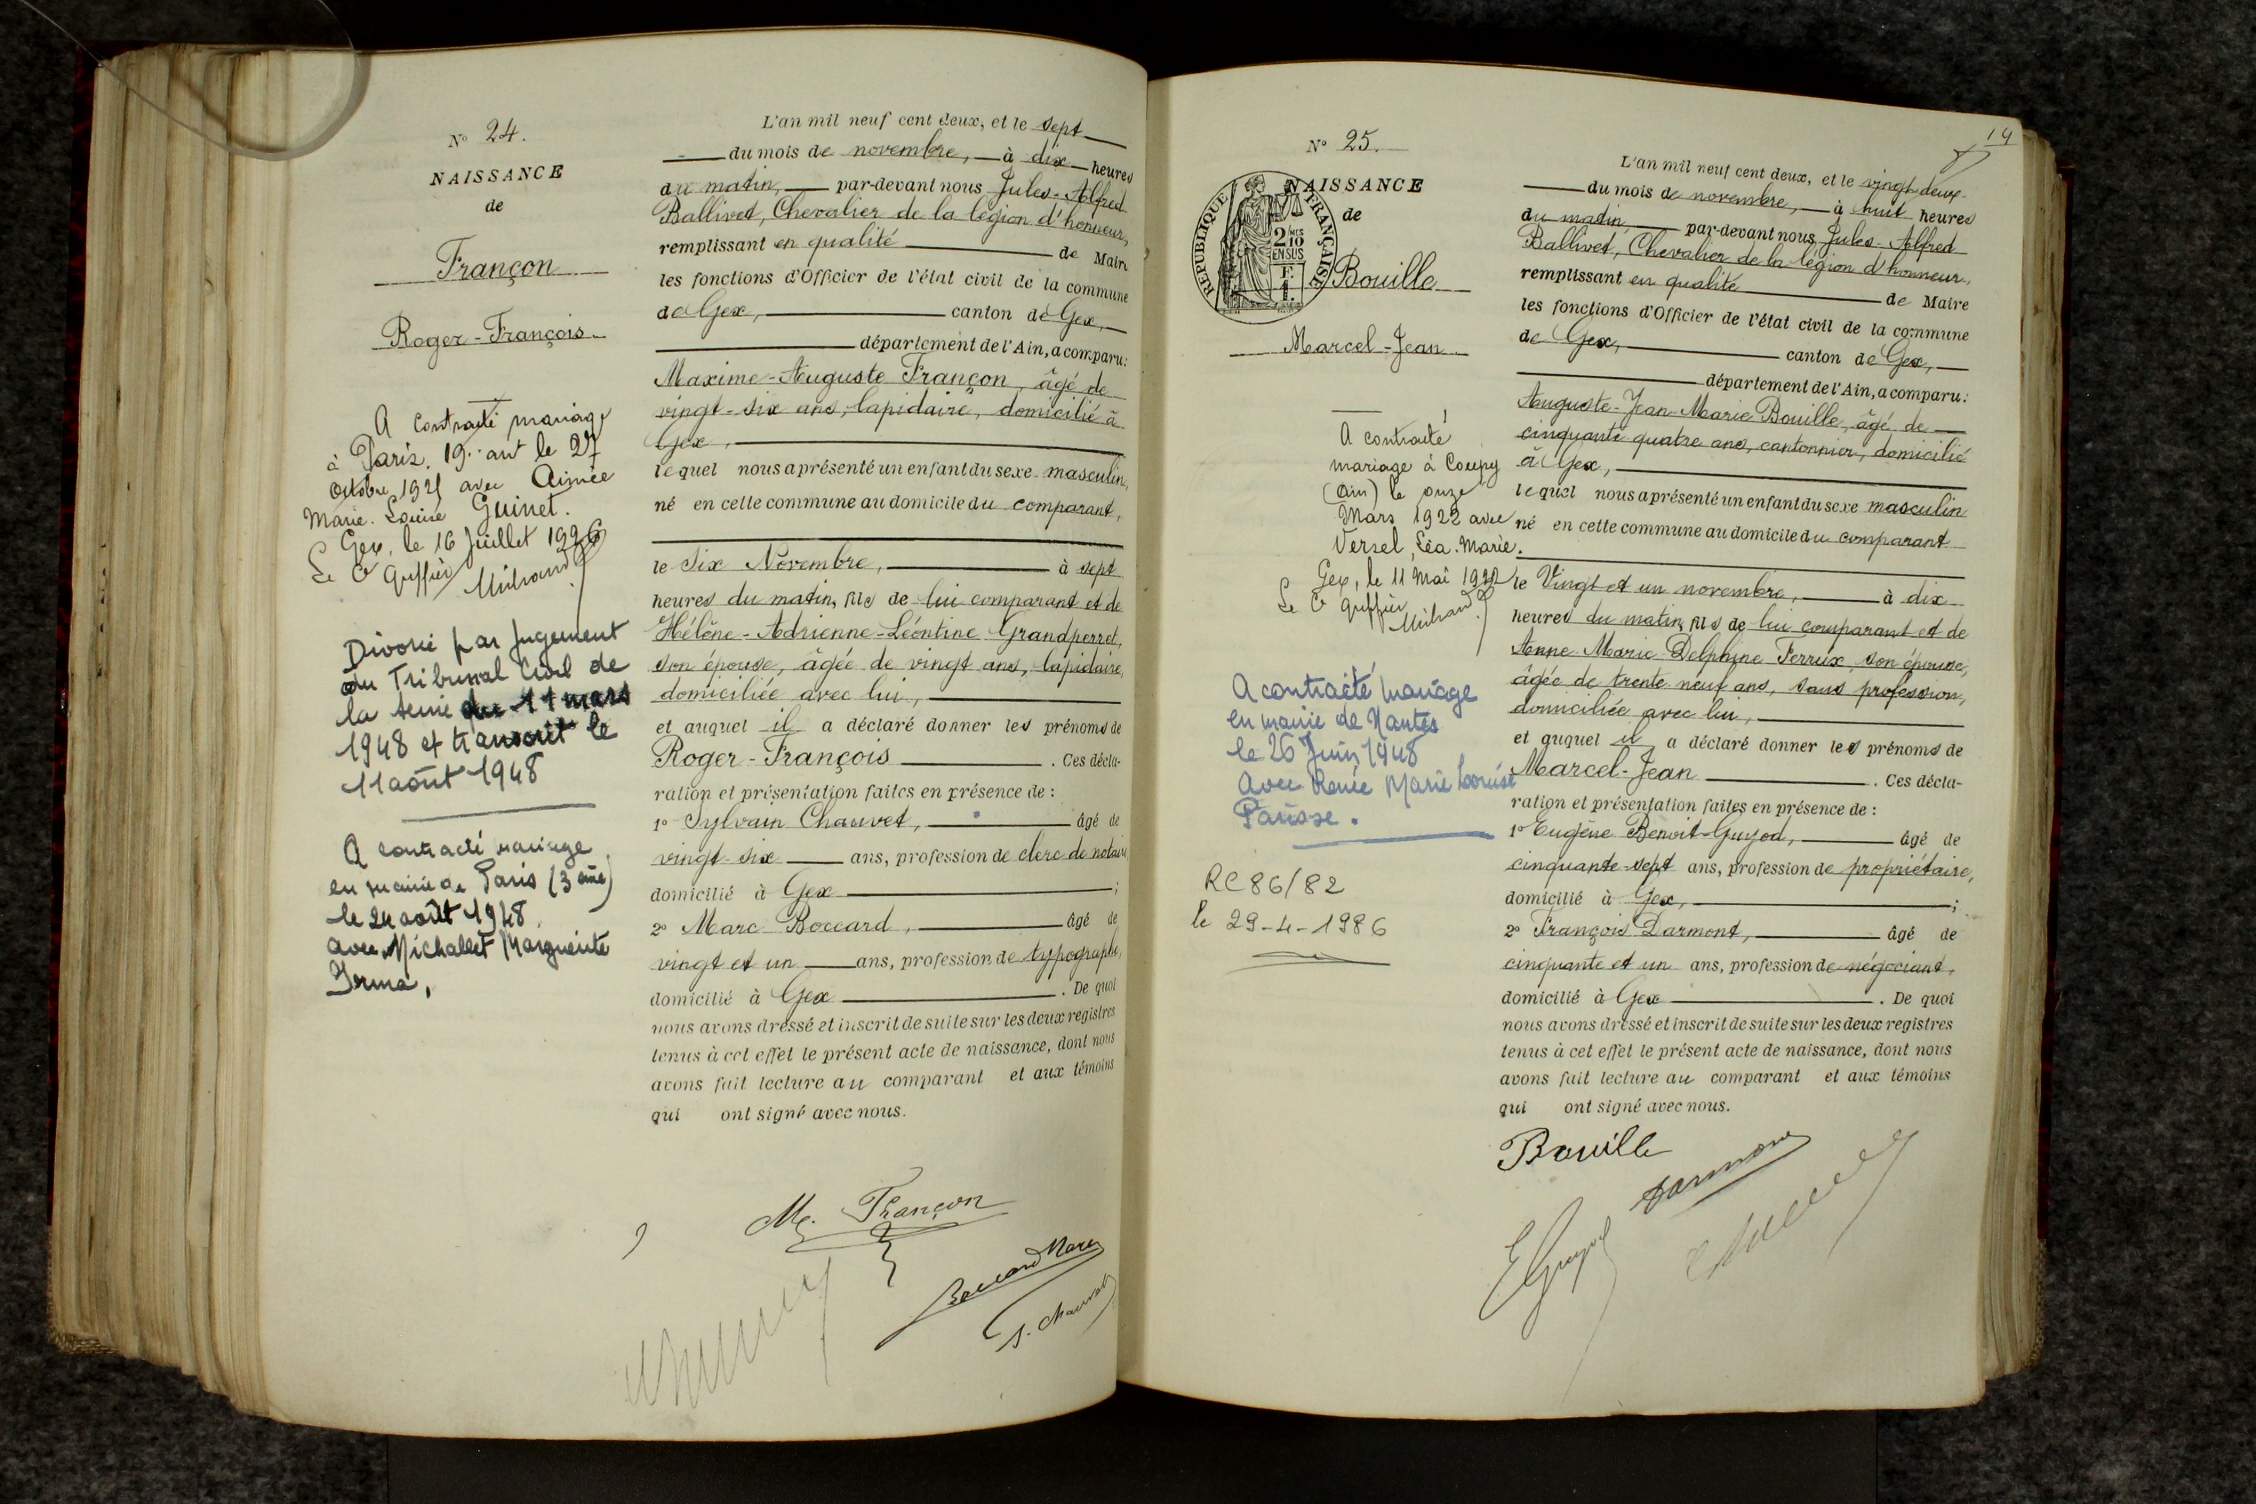 N° 24.
NAISSANCE
de
Françon
Roger-François
A contracté mariage
à Paris. 19.. arrt le 27
Octobre 1925 avec Aimée
Marie. Louise Guinet.
Gex, le 16 Juillet 1926
Le Cs Greffier
Divorcé par jugement
du Tribunal Civil de
la Seine du 11 mars
1948 et transcrit le
11 août 1948
A contracté mariage
en mairie de Paris (3ème)
le 24 août 1948.
avec Michallet Marguerite
Irma.
L'an mil neuf cent deux, et le sept
du mois de novembre, à dix heures
du matin, par-devant nous Jules-Alfred
Ballivet, Chevalier de la légion d'honneur,
remplissant en qualité de Maire
les fonctions d'Officier de l'état civil de la commune
de Gex, canton de Gex,
département de l'Ain, a comparu:
Maxime-Auguste Françon, âgé de
vingt-six ans, lapidaire, domicilié à
Gex,
lequel nous a présenté un enfant du sexe masculin,
né en cette commune au domicile du comparant,
le Six Novembre, à sept
heures du matin, fils de lui comparant et de
Hélène-Adrienne-Léontine Grandperret,
son épouse, âgée de vingt ans, lapidaire,
domiciliée avec lui,
et auquel il a déclaré donner les prénoms de
Roger-François . Ces décla-
ration et présentation faites en présence de :
1° Sylvain Chauvet, âgé de
vingt-six ans, profession de clerc de notaire
domicilié à Gex ;
2° Marc Boccard, âgé de
vingt et un ans, profession de typographe,
domicilié à Gex . De quoi
nous avons dressé et inscrit de suite sur les deux registres
tenus à cet effet le présent acte de naissance, dont nous
avons fait lecture au comparant et aux témoins
qui ont signé avec nous.
M. Françon
Boccard Marc
S. Chauvet
14
N° 25.
NAISSANCE
de
RÉPUBLIQUE FRANÇAISE
2 MES
10
EN SUS
F.
1.
Bouille
Marcel-Jean
A contracté
mariage à Coupy
(Ain) le onze
Mars 1922 avec
Versel, Léa. Marie.
Gex, le 11 Mai 1922
Le Cs Greffier
A contracté mariage
en mairie de Nantes
le 26 Juin 1948
avec Renée Marie Louise
RC 86/82
le 29-4-1986
L'an mil neuf cent deux, et le vingt deux
du mois de novembre, à huit heures
du matin, par-devant nous Jules-Alfred
Ballivet, Chevalier de la légion d'honneur,
remplissant en qualité de Maire
les fonctions d'Officier de l'état civil de la commune
de Gex, canton de Gex,
département de l'Ain, a comparu:
Auguste-Jean-Marie Bouille, âgé de
cinquante quatre ans, cantonnier, domicilié
à Gex,
lequel nous a présenté un enfant du sexe masculin
né en cette commune au domicile du comparant
le Vingt et un novembre, à dix
heures du matin, fils de lui comparant et de
Anne-Marie-Delphine Ferrux, son épouse,
âgée de trente neuf ans, sans profession,
domiciliée avec lui,
et auquel il a déclaré donner les prénoms de
Marcel-Jean . Ces décla-
ration et présentation faites en présence de :
1° Eugène Benoit-Guyod, âgé de
cinquante-sept ans, profession de propriétaire,
domicilié à Gex, ;
2° François Darmont, âgé de
cinquante et un ans, profession de négociant,
domicilié à Gex . De quoi
nous avons dressé et inscrit de suite sur les deux registres
tenus à cet effet le présent acte de naissance, dont nous
avons fait lecture au comparant et aux témoins
qui ont signé avec nous.
Bouille
Darmont